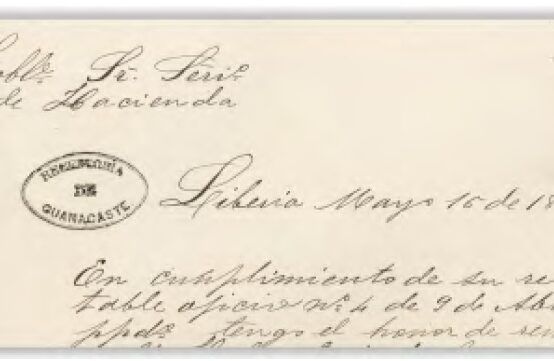 Sr. Srio.
de Hacienda
DE
GUANACASTE
Liberia Mayo 16 de 18
En cumplimiento de su re
table oficio nº 4 de 9 de Ab
ppdº tengo el honor de re